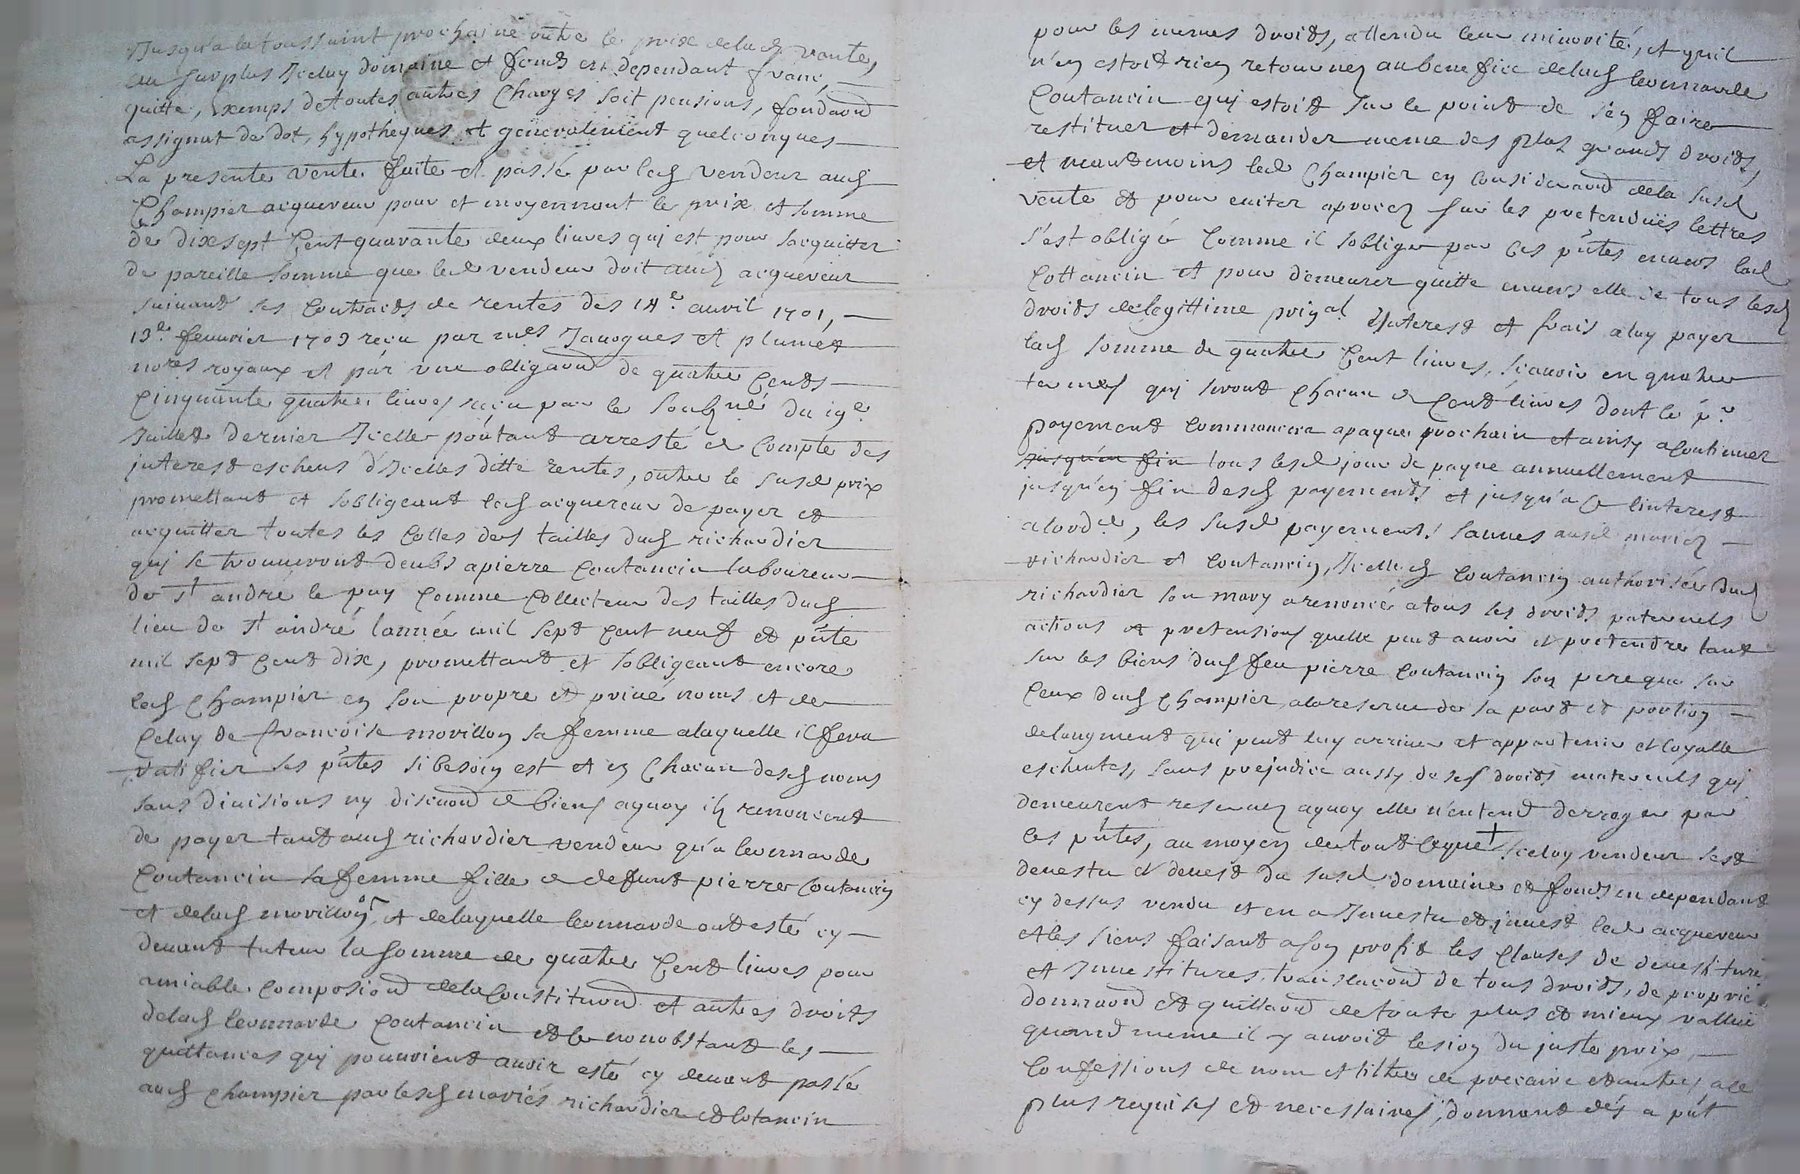 Jusqu'a la toussaint prochaine outre le prix de lad vante,
au surplus Iceluy domaine et fonds en dependant franc,
quitte, Exemps de toutes autres Charges soit pensions, fondaon
assignat de dot, hypotheques et generalement quelconques
La presente vente faite et passé par led vendeur aud
Champier acquereur pour et moyennant le prix et somme
de dixsept Cent quarante deux livres qui est pour s'acquitter
de pareille somme que led vendeur doit aud acquereur
suivant les Contracts de rentes des 14e auvril 1701,
13e feuvrier 1709 reçu par mes Jauogues et plumet
nores royaux et par une obligaon de quatre Cents
Cinquante quatre livres reçu par le soubsné du 19e
Juillet dernier Icelle pourtant arresté de Compte des
interest escheus d'Icelles ditte rentes, outre le susd prix
promettant et s'obligeant led acquereur de payer et
acquitter toutes les Cottes des tailles dud richardier
qui se trouveront deubs a pierre Coutancin laboureur
de St andre le puy Comme Collecteur des tailles dud
lieu de St andré l'année mil sept Cent neuf et pnte
mil sept Cent dix, promettant et s'obligeant encore
led Champier en son propre et privé noms et de
Celuy de francoise morillon sa femme a laquelle il fera
ratifier les pntes si besoin est et en Chacun desd noms
sans divisions ny discuon de biens a quoy ils renoncent
de payer tant aud richardier vendeur qu'a leonnarde
Coutancin sa femme fille de deffunt pierre Coutancin
et de lad morillon, et de laquelle leonnarde ont esté cy
devant tuteur la somme de quatre Cent livres pour
amiable Composiond de la Constituond et autres droits
de lad leonnarde Coutancin et Ce nonobstant les
quittances qui pouvoient avoir esté cy devant passé
aud Champier par lesd mariés richardier et Cotancin
pour les memes droits, attendu leur minorité, et qu'il
n'en estoit rien retourner au benefice de lad leonnarde
Coutancin qui estoit sur le point de s'en faire
restituer et demander meme des plus grands droits,
et neantmoins led Champier en Consideraond de la susd
vente et pour eviter aproces sur les pretendues lettres
s'est obligé Comme il s'oblige par Ces pntes envers lad
Cottancin et pour demeurer quitte envers elle de tous lesd
droits de legittime prinal Interest et frais a luy payer
lad somme de quatre Cent livres, sçavoir en quatre
termes qui seront Chacun de Cent livres dont le pr
payement Commencera a paques prochain et ainsy a Continuer
jusqu'en fin tous lesd jour de paque annuellement
jusqu'en fin desd payements et jusqu'a Ce l'interest
les susd payements
richardier et Coutancin, Icelle Coutancin authorisée dud
richardier son mary a renoncé a tous les droits paternels
actions et pretensions quelle peut avoir et pretendre tant
sur les biens dud feu pierre Coutancin son pere que sur
Ceux dud Champier, a la reserve de sa part et portion
de laugment qui peut luy arriver et appartenir et loyalle
escheutes, sans prejudice aussy de ses droits maternels qui
demeurent reservez a quoy elle n'entend derroger par
Ces pntes, au moyen de tout Ce que + Iceluy vendeur s'est
devestu et devest du susd domaine et fonds en dependant
cy dessus vendu et en a Investu et jnvest led acquereur
et les siens faisant a son profit les Clauses de devestiture
et Investitures, translacond de tous droits, de proprié
donnaond et quittaond de toute plus et mieux vallue
quand meme il y auroit lesion du juste prix,
Confessions de nom et tiltre de precaire et autres a ce
plus requises et necessaires, donnant dés a pnt